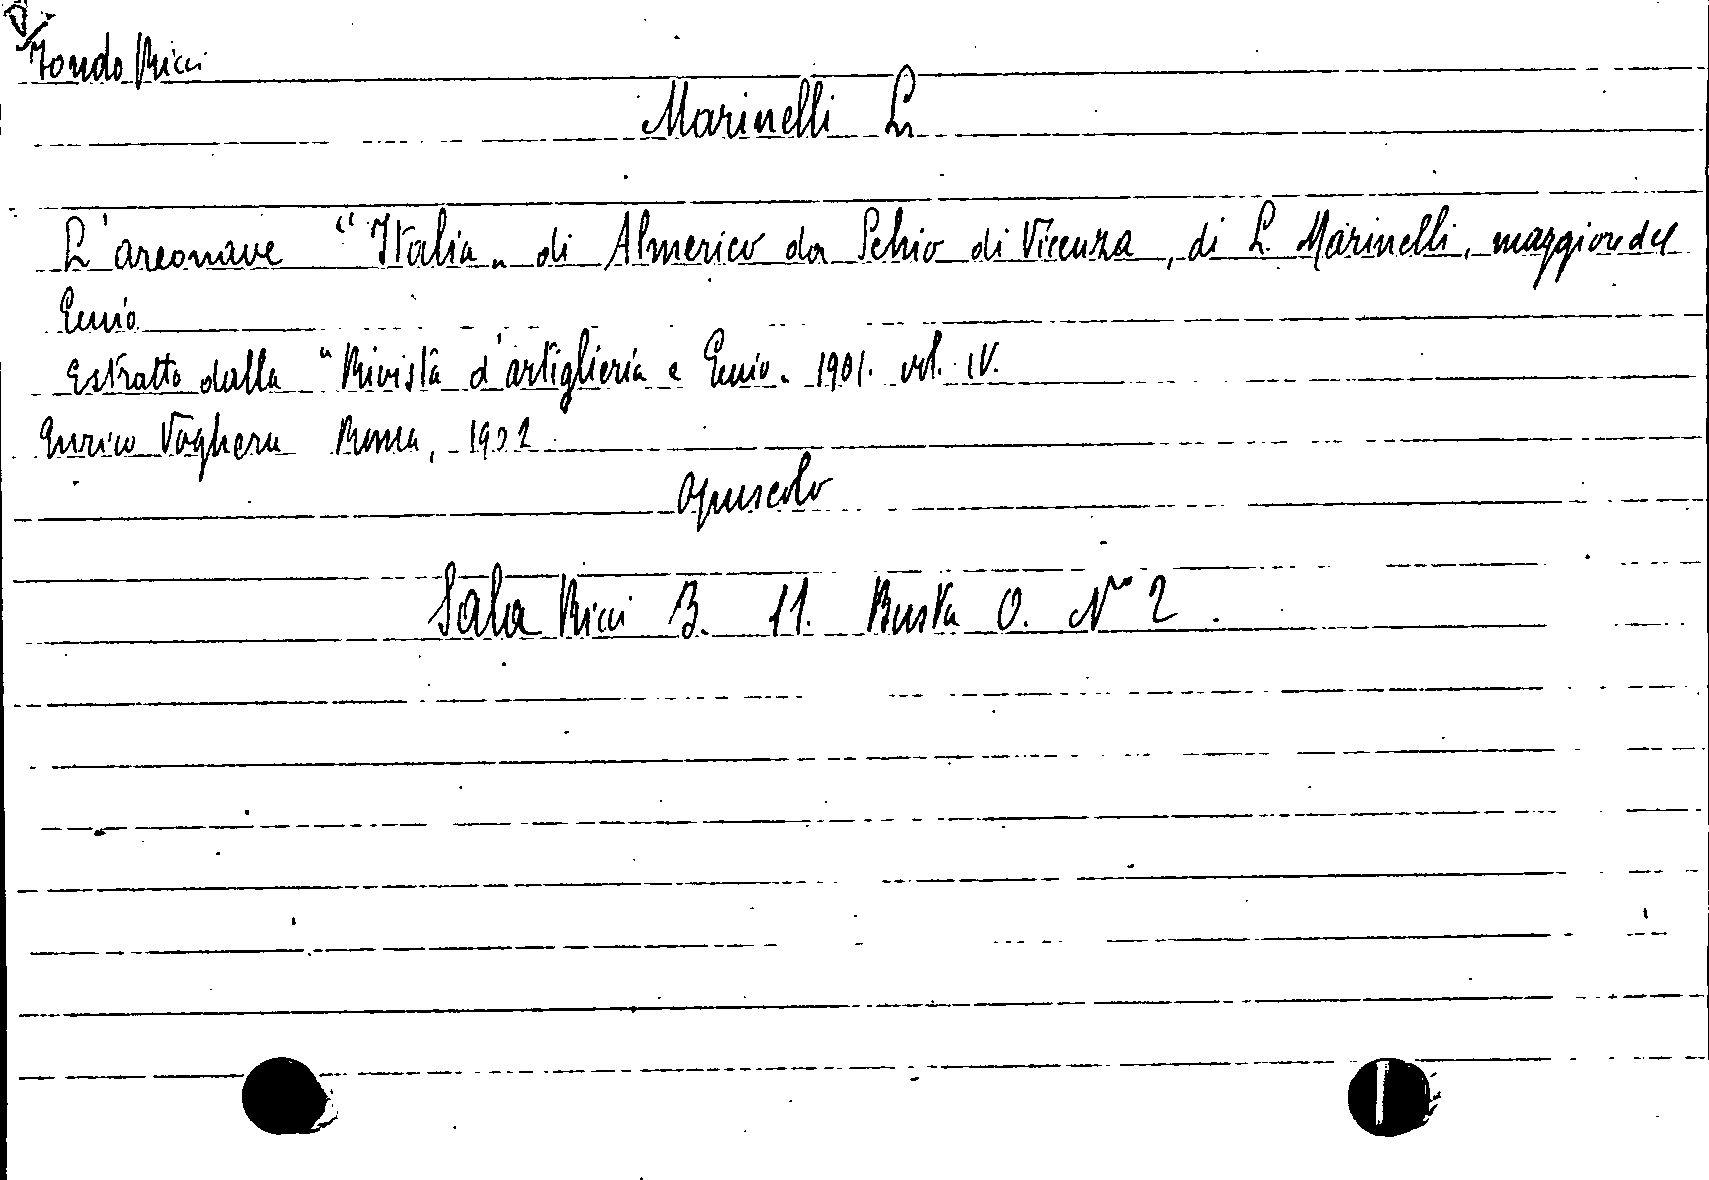 Fondo Ricci
Marinelli L.
L'areonave "Italia" di Almerico da Schio di Vicenza, di L. Marinelli, maggiore del
Genio
Estratto dalla "Rivista d'artiglieria e Genio" 1901. vol. IV.
Enrico Voghera Roma, 1902
opuscolo
Sala Ricci B. 11. Busta O. N° 2.